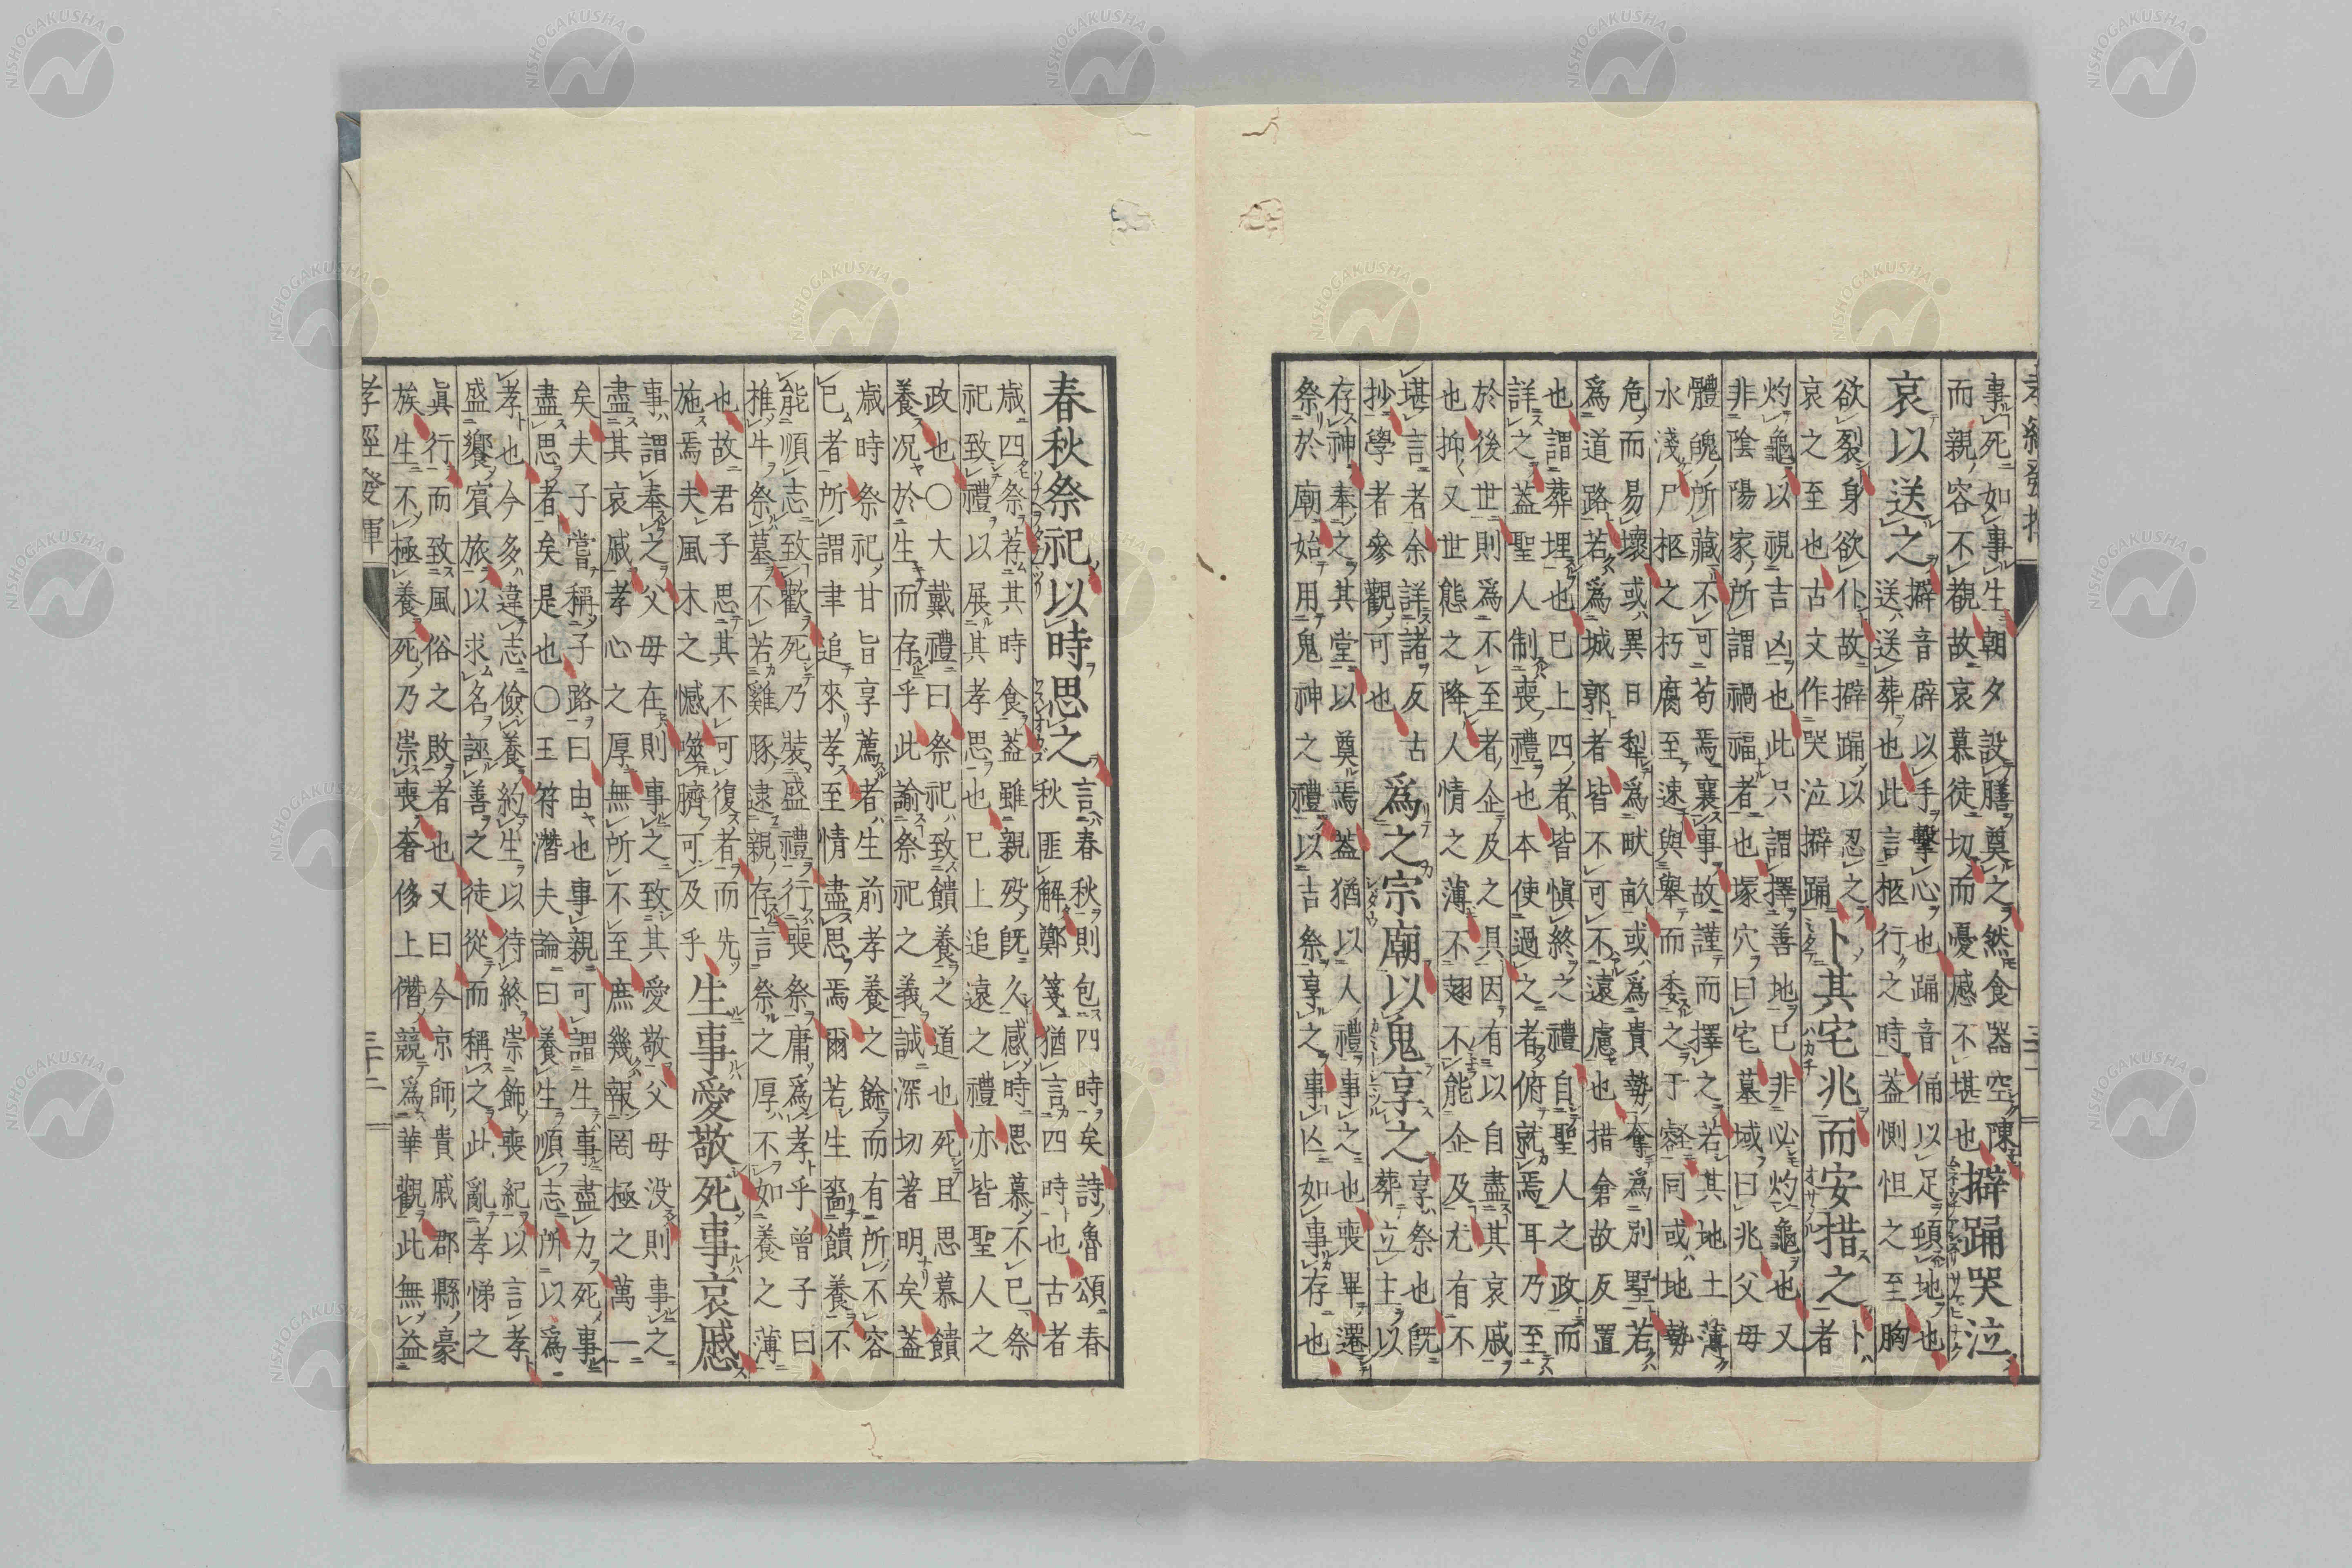 孝經發揮
事死如事生朝夕設膳奠之然食器空陳
而親容不覩故哀慕徒切而憂慼不堪也擗踊哭泣
哀以送之擗音辟以手擊心也踊音俑以足頓地也
送送葬也此言柩行之時蓋惻怛之至胸
欲裂身欲仆故擗踊以忍之卜其宅兆而安措之卜
哀之至也古文作哭泣擗踊者
灼龜以視吉凶也此只謂擇善地已非必灼龜也又
非陰陽家所謂禍福者也塚穴曰宅墓域曰兆父母
體魄所藏不可苟焉襄事故謹而擇之若其地土薄
水淺尸柩之朽腐至速與舉而委之于窞同或地勢
危而易壞或異日犁爲畎畝或爲貴勢奪爲別墅若
爲道路若爲城郭者皆不可不遠慮也措會故反置
也謂葬埋也已上四者皆愼終之禮自聖人之政而
詳之蓋聖人制喪禮也本使過之者俯就焉耳乃至
於後世則爲不至者企及之具因有以自盡其哀戚
也抑又世態之降人情之薄不翅不能企及尤有不
堪言者余詳諸反古爲之宗廟以鬼享之享祭也旣
抄學者參觀可也葬立主以
存神奉之其堂以奠焉蓋猶以人禮事之也喪畢遷
祭於廟始用鬼神之禮以吉祭享之事亾如事存也
春秋祭祀以時思之言春秋則包四時矣詩魯頌春
秋匪解鄭箋猶言四時也古者
歳四祭荐其時食蓋雖親歿旣久感時思慕不已祭
祀致禮以展其孝思也已上追遠之禮亦皆聖人之
政也〇大戴禮曰祭祀致饋養之道也死且思慕饋
養况於生而存乎此諭祭祀之義誠深切著明矣蓋
歳時祭祀甘旨享薦者生前孝養之餘而有所不容
已者所謂聿追來孝至情盡思焉爾若生啚饋養不
能順志致歡死乃裝盛禮行喪祭庸爲孝乎曾子曰
推牛祭墓不若雞豚逮親存言祭之厚不如養之薄
也故君子思其不可復者而先
施焉夫風木之憾噬臍可及乎生事愛敬死事哀慼
事謂奉之父母在則事之致其愛敬父母没則事之
盡其哀戚孝心之厚無所不至庶幾報罔極之萬一
矣夫子嘗稱子路曰由也事親可謂生事盡力死事
盡思者矣是也〇王符潛夫論曰養生順志所以爲
孝也今多違志儉養約生以待終崇飾喪紀以言孝
盛饗賓旅以求名誣善之徒從而稱之此亂孝悌之
眞行而致風俗之敗者也又曰今京師貴戚郡縣豪
族生不極養死乃崇喪奢侈上僭競爲華觀此無益
孝經發揮
三十二